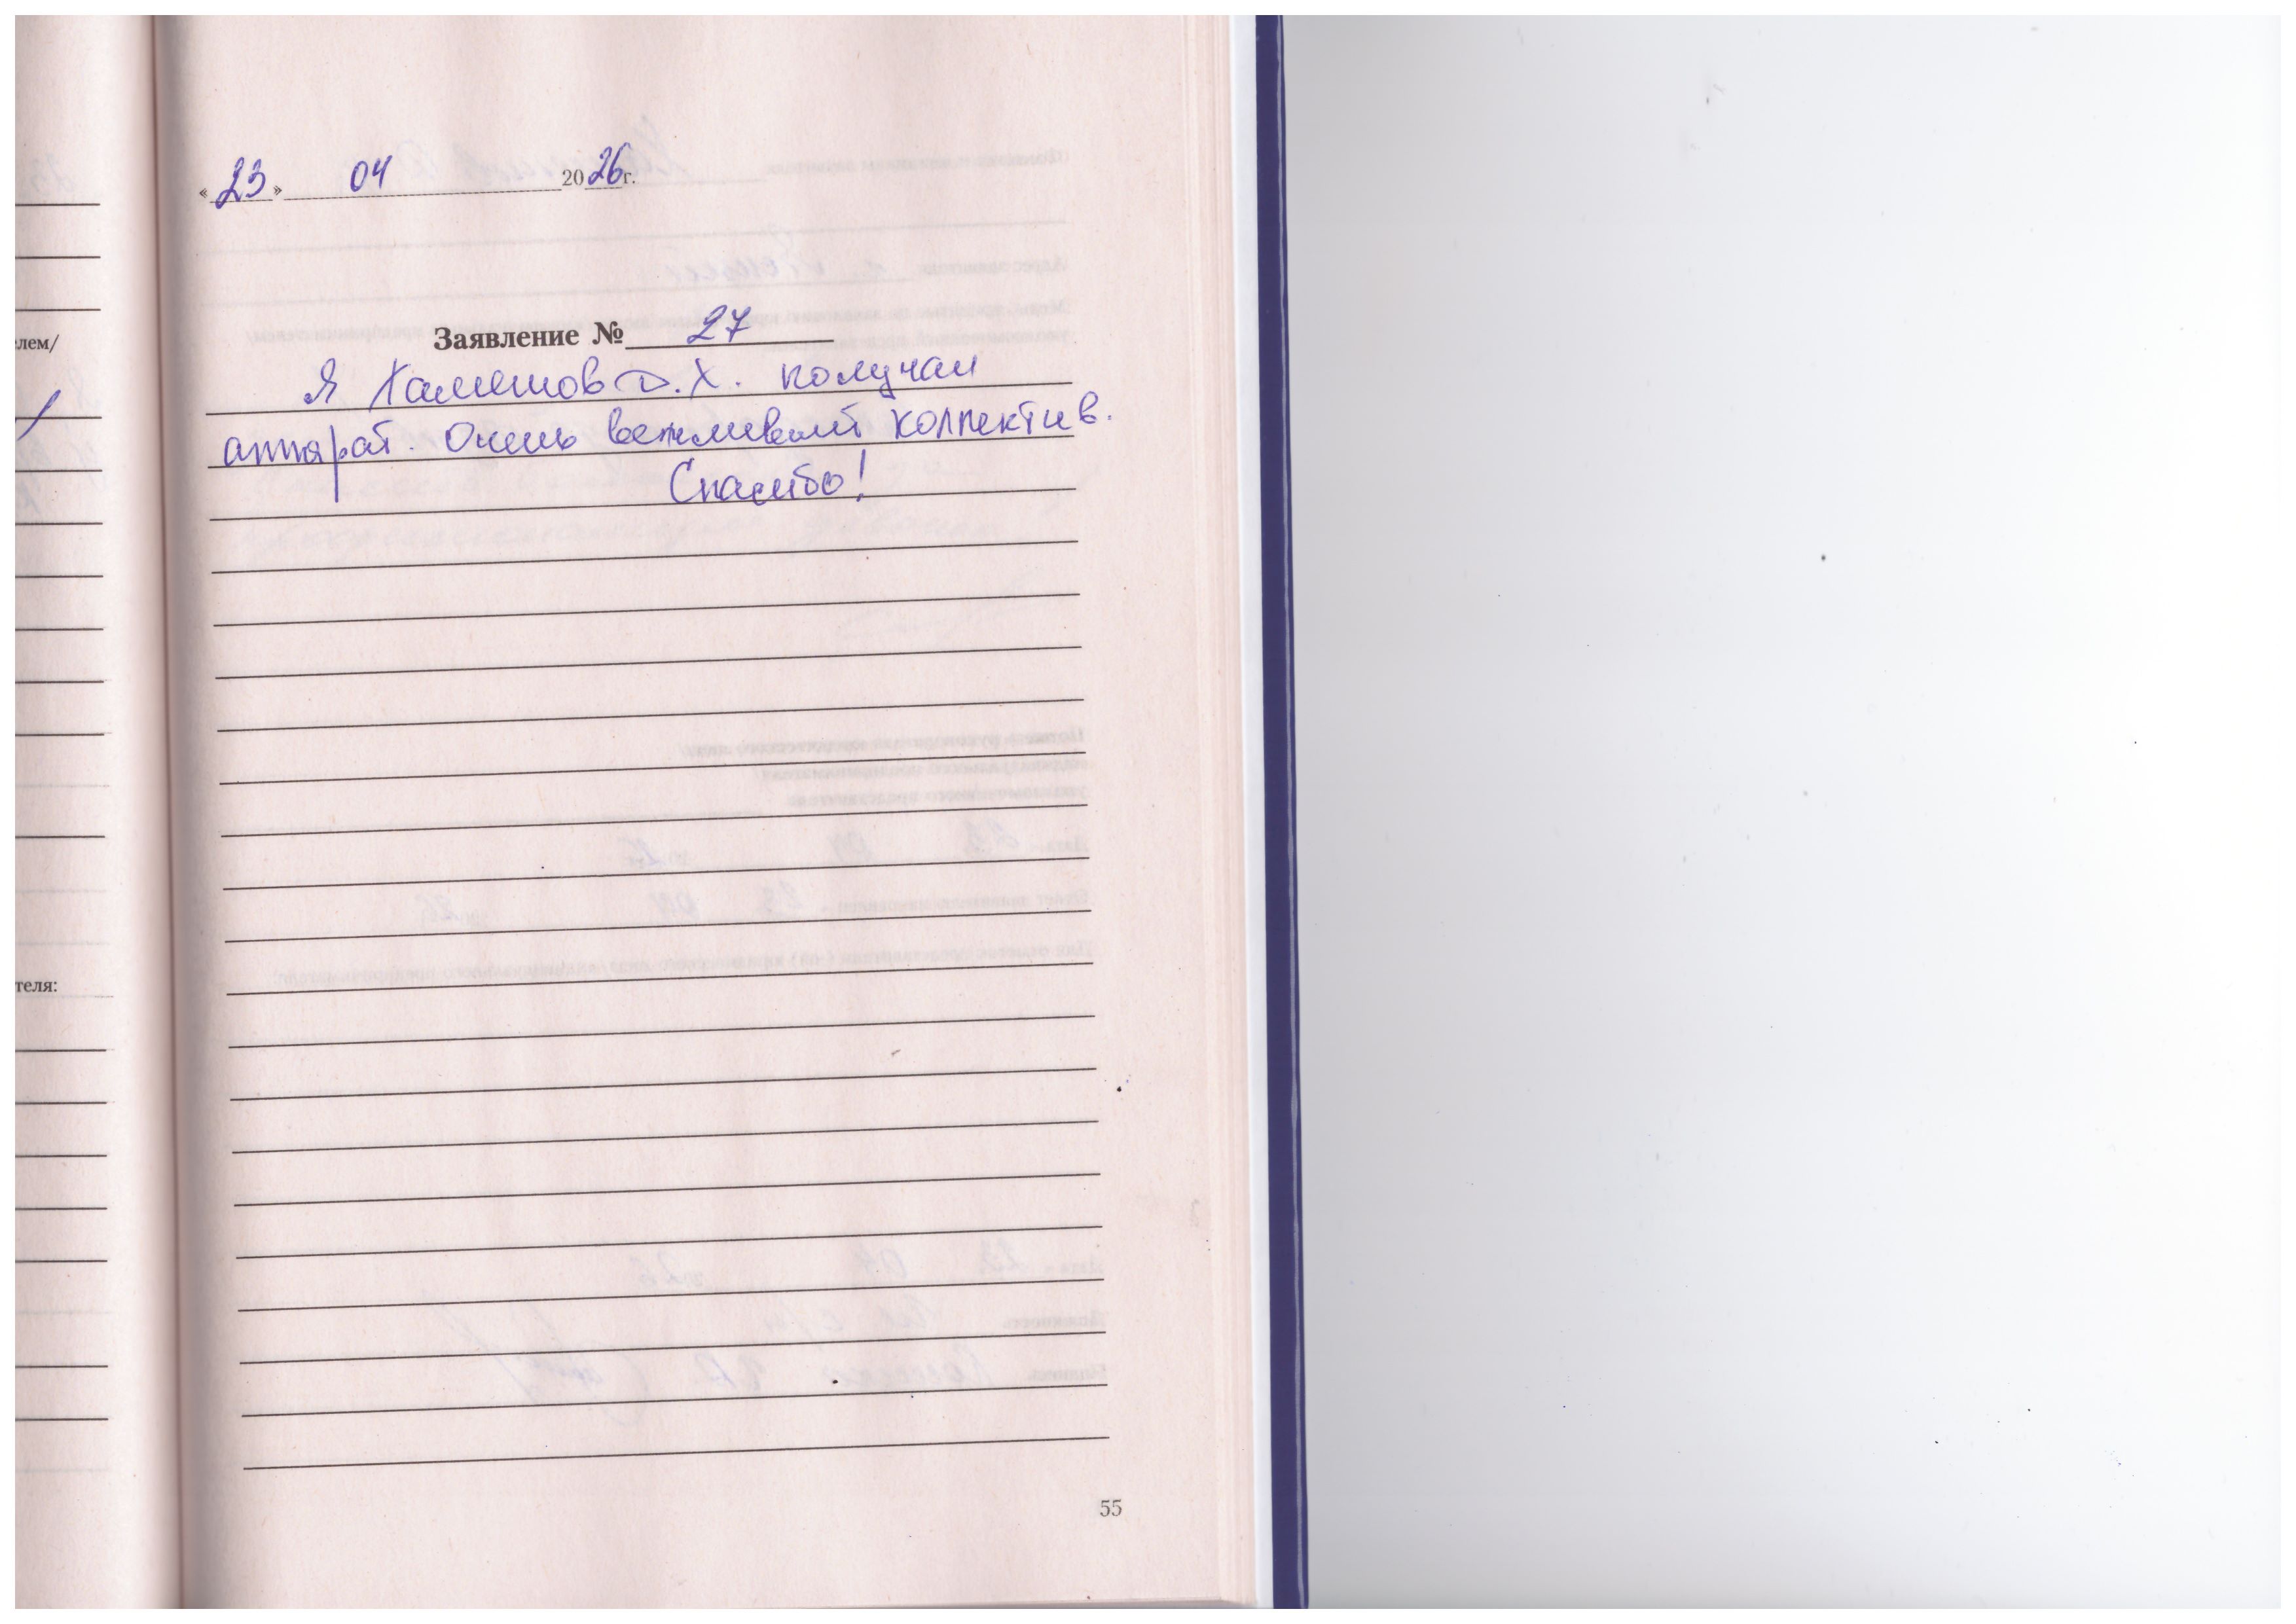 «23» 04 2026г.
Заявление № 27
Я Хамешов Д.Х. получал
аппарат. Очень вежливый коллектив.
Спасибо!
лем/
теля:
55